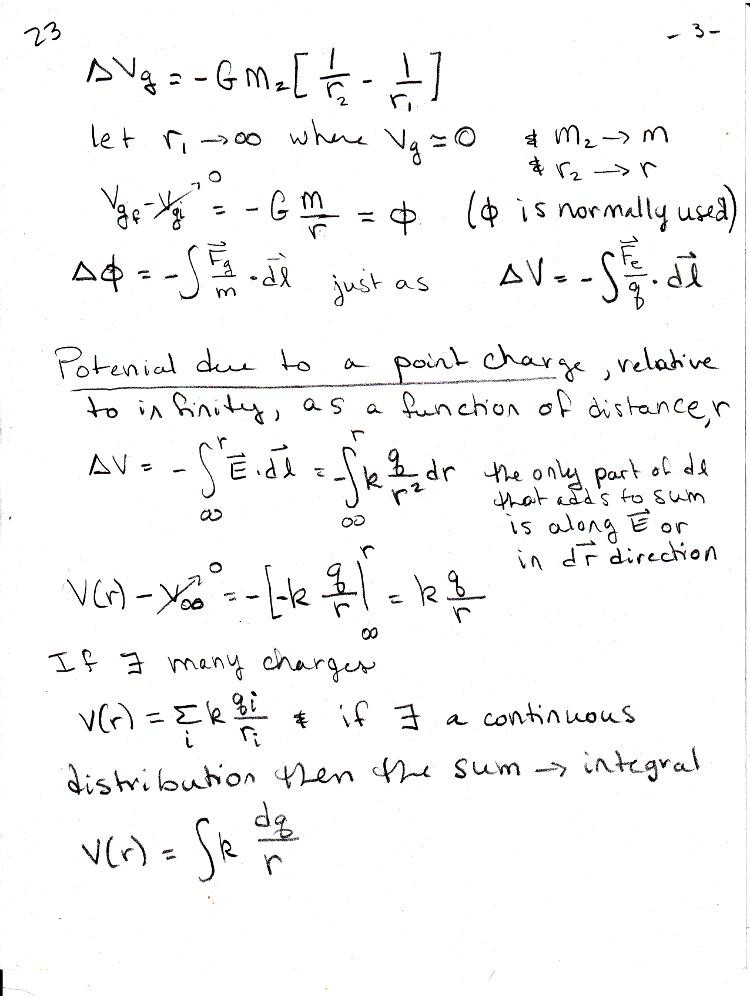 23 - 3 -
ΔVg = - G m₂ [ 1/r₂ - 1/r₁ ]
let r₁ → ∞ where Vg ≈ 0 & m₂ → m
& r₂ → r
Vgf - Vgi→0 = - G m/r = ϕ (ϕ is normally used)
Δϕ = - ∫ F⃗g/m · dl⃗ just as ΔV = - ∫ F⃗e/q · dl⃗
Potenial due to a point charge, relative
to infinity, as a function of distance, r
ΔV = - ∫_∞^r E⃗ · dl⃗ = - ∫_∞^r k q/r² dr the only part of dl
that adds to sum
is along E⃗ or
in dr⃗ direction
V(r) - V∞→0 = - [ -k q/r |_∞^r = k q/r
If ∃ many charges
V(r) = Σ_i k qi/ri & if ∃ a continuous
distribution then the sum → integral
V(r) = ∫ k dq/r